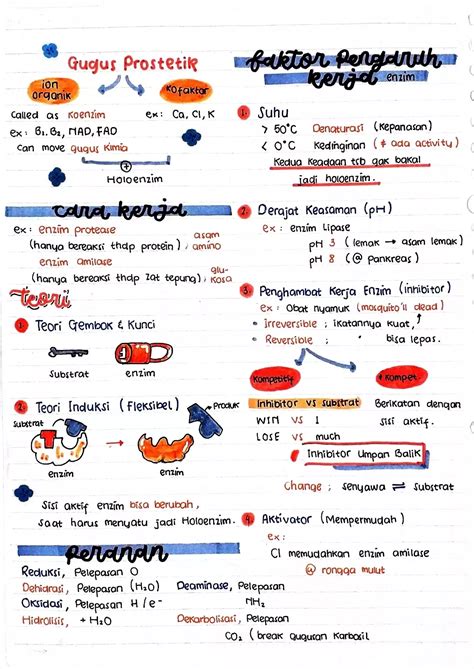 Gugus Prostetik
ion
organik
Kofaktor
Called as koenzim
ex: Ca, Cl, K
ex: B1, B2, NAD, FAD
Can move gugus kimia
+
Holoenzim
cara kerja
ex: enzim protease
(hanya bereaksi thdp protein), asam amino
enzim amilase
(hanya bereaksi thdp zat tepung), glu-kosa
Teori
1. Teori Gembok & Kunci
substrat
enzim
2. Teori Induksi (Fleksibel)
Produk
substrat
enzim
enzim
Sisi aktif enzim bisa berubah,
saat harus menyatu jadi Holoenzim.
faktor pengaruh
kerja enzim
1. Suhu
> 50°C Denaturasi (kepanasan)
< 0°C Kedinginan (≠ ada activity)
Kedua keadaan tsb gak bakal
jadi holoenzim.
2. Derajat Keasaman (pH)
ex: enzim lipase
pH 3 (lemak → asam lemak)
pH 8 (@ pankreas)
3. Penghambat Kerja Enzim (inhibitor)
ex: Obat nyamuk (mosquito'll dead)
• irreversible ; ikatannya kuat, ↑
• Reversible ; bisa lepas.
Kompetitif
≠ kompet.
Inhibitor vs substrat
Berikatan dengan
sisi aktif.
WIN vs 1
LOSE vs much
Inhibitor Umpan Balik
Change ; senyawa ⇌ substrat
4. Aktivator (Mempermudah)
ex:
Cl memudahkan enzim amilase
@ rongga mulut
peranan
Reduksi, Pelepasan O
Dehidrasi, Pelepasan (H2O)
Oksidasi, Pelepasan H / e-
Hidrolisis, + H2O
Deaminase, Pelepasan
NH2
Dekarbolisasi, Pelepasan
CO2 (break gugusan Karboxil